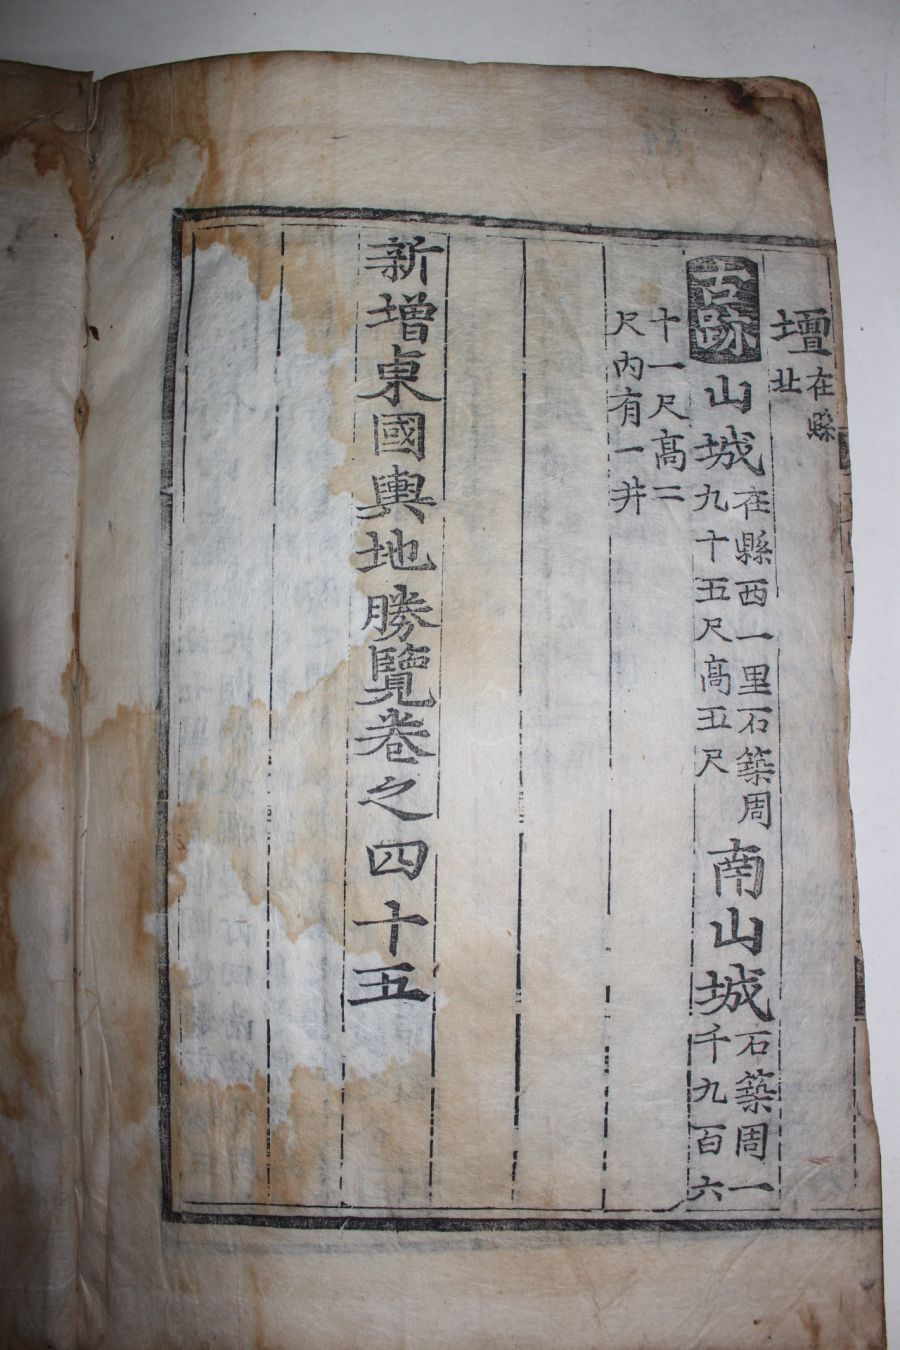 壇在縣北
古跡山城在縣西一里石築周九十五尺髙五尺南山城石築周一千九百六
十一尺髙二尺內有一井
新增東國輿地勝覽卷之四十五